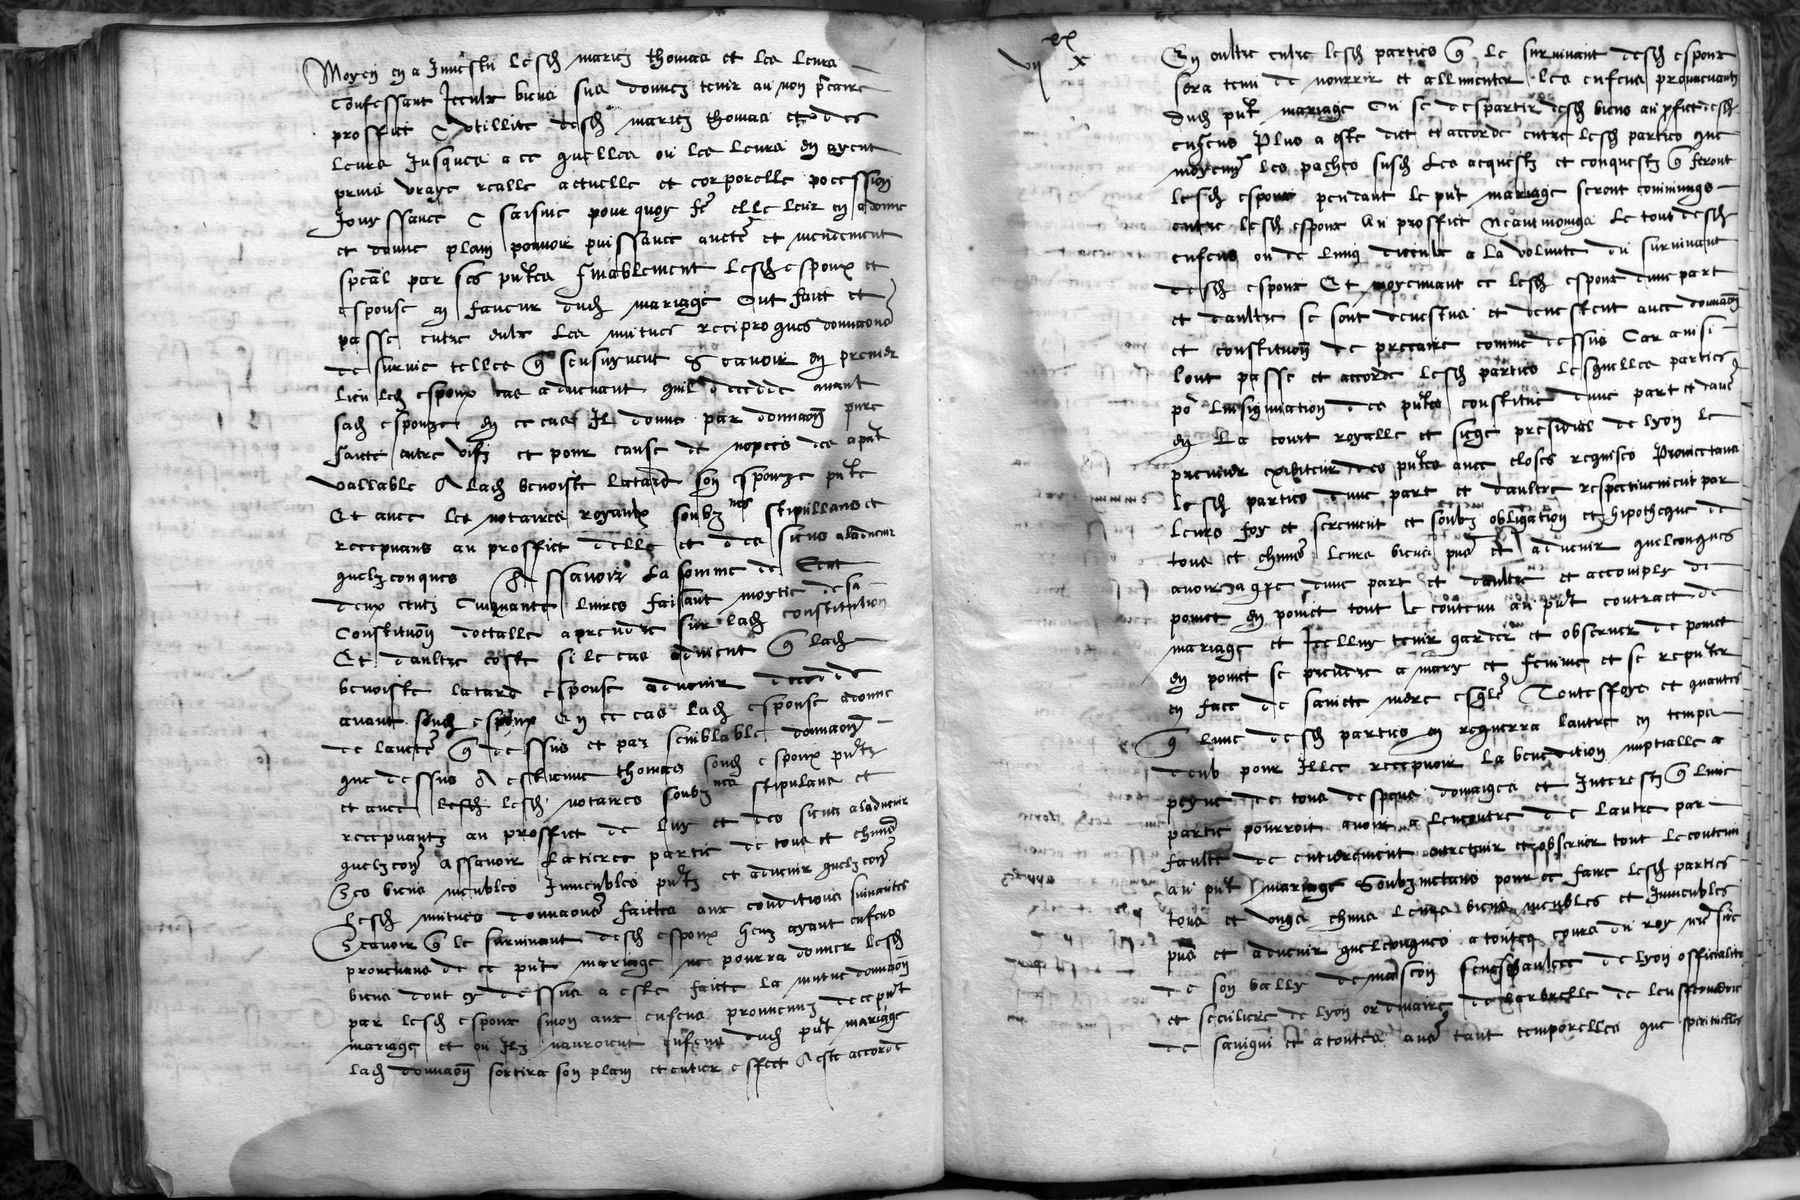 Moyen en a Investu lesd mariez thomas et les leurs
Confessant Iceulx biens sus donnez tenir au nom precaire
proffict & utillite desd mariez thomas et des
leurs Jusques a ce quelles ou les leurs en ayent
prins vraye realle actuelle et corporelle pocession
Jouyssance & saisine pour quoy fe elle leur en a donne
et donne plain pouvoir puissance aucte et mendement
special par ses pntes finablement lesd espoux et
espouse en faveur dud mariage Ont faict et
passe entre eulx les mutues reciproques donnaons
de survie telles q sensuyvent Scavoir en premier
lieu led espoux cas advenant quil decedde avant
sad espouze en ce cas Il donne par donnaon pure
faicte entre vifz et pour cause de nopces des a pnt
vallable A lad benoiste latard son espouze pnte
Et avec les notaires royaulx soubz nes stipullans et
recepvans au proffict delle et des siens aladvenir
quelzconques Assavoir la somme de Cent
deux centz Cinquante livres faisant moytie de sa
Constituon doctalle a prendre sur lad constitution
Et daultre coste si le cas advient q lad
benoiste latard espouse advenir decedde
avant sond espoux En ce cas lad espouse a donne
de laucte q dessus et par semblable donnaon
que dessus A estienne thomas sond espoux pntz
et avec lesd notaires soubz nes stipulans et
recepvantz au proffict de luy et des siens aladvenir
quelzcons Assavoir la tierce partie de tous et chuns
Ses biens meubles Inmeubles pntz et advenir quelzcons
Lesd mutues donnaons faictes aux conditions suivantes
Scavoir q le survivant desd espoux heuz ayant enfens
provenans de ce pnt mariage ne pourra donner lesd
biens dont cy dessus a este faicte la mutue donnaon
par lesd espoux sinon aux enfens provenuz de ce pnt
mariage et ou Ilz nauroient enfens dud pnt mariage
lad donnaon sortira son plain et entier effect A este accorde
vii xx x
En oultre entre lesd parties q le survivant desd espoux
sera tenu de nourrir et allimenter les enfens provenantz
dud pnt mariage Ou se despartir desd biens au pffict desd
enfens Plus a este dict et accorde entre lesd parties que
moyennant les paches susd Les acquestz et conquestz q feront
lesd espoux pendant le pnt mariage seront commungs
entre lesd espoux Au proffict Neantmoings le tout desd
enfens ou de lung diceulx a la volunte du survivant
desd espoux Et moyennant ce lesd espoux dune part
et daultre se sont devestus et devestent avec donnaon
et constituon de precaire comme dessus Car ainsi
lont passe et accorde lesd parties Lesquelles parties
po Linsignuation des pntes constitue dune part et daue
en La court royalle et siege presidial de lyon le
premier exhiteur des pntes avec closes requises Promectans
lesd parties dune part et daultre respectivement par
leurs foy et serement et soubz obligation et hipotheque de
tous et chuns leurs biens pns et advenir quelconques
avoir agre dune part et daultre et accomply de
poinct en poinct tout le contenu au pnt contract de
mariage et Icelluy tenir garder et observer de poinct
en poinct se prendre a mary et femme et se repnter
en face de saincte mere esgle Toutesfoys et quantes
q lune desd parties en requerra lautre en temps
deub pour Illec recepvoir la benedition nuptialle a
peyne de tous despens domaiges et Interestz q lune
partie pourroit avoir a lencontre de lautre par
faulte de entierement entretenir et observer tout le contenu
au pnt mariage Soubzmetans pour ce faire lesd parties
tous et ungs chuns leurs biens meubles et Inmeubles
pns et advenir quelconques a toutes cours du roy nre sire
de son bally de mascon seneschaulcee de lyon officialite
et seculiere de lyon ordinaire de
de savigni et a toutes aues tant temporelles que speritnelles